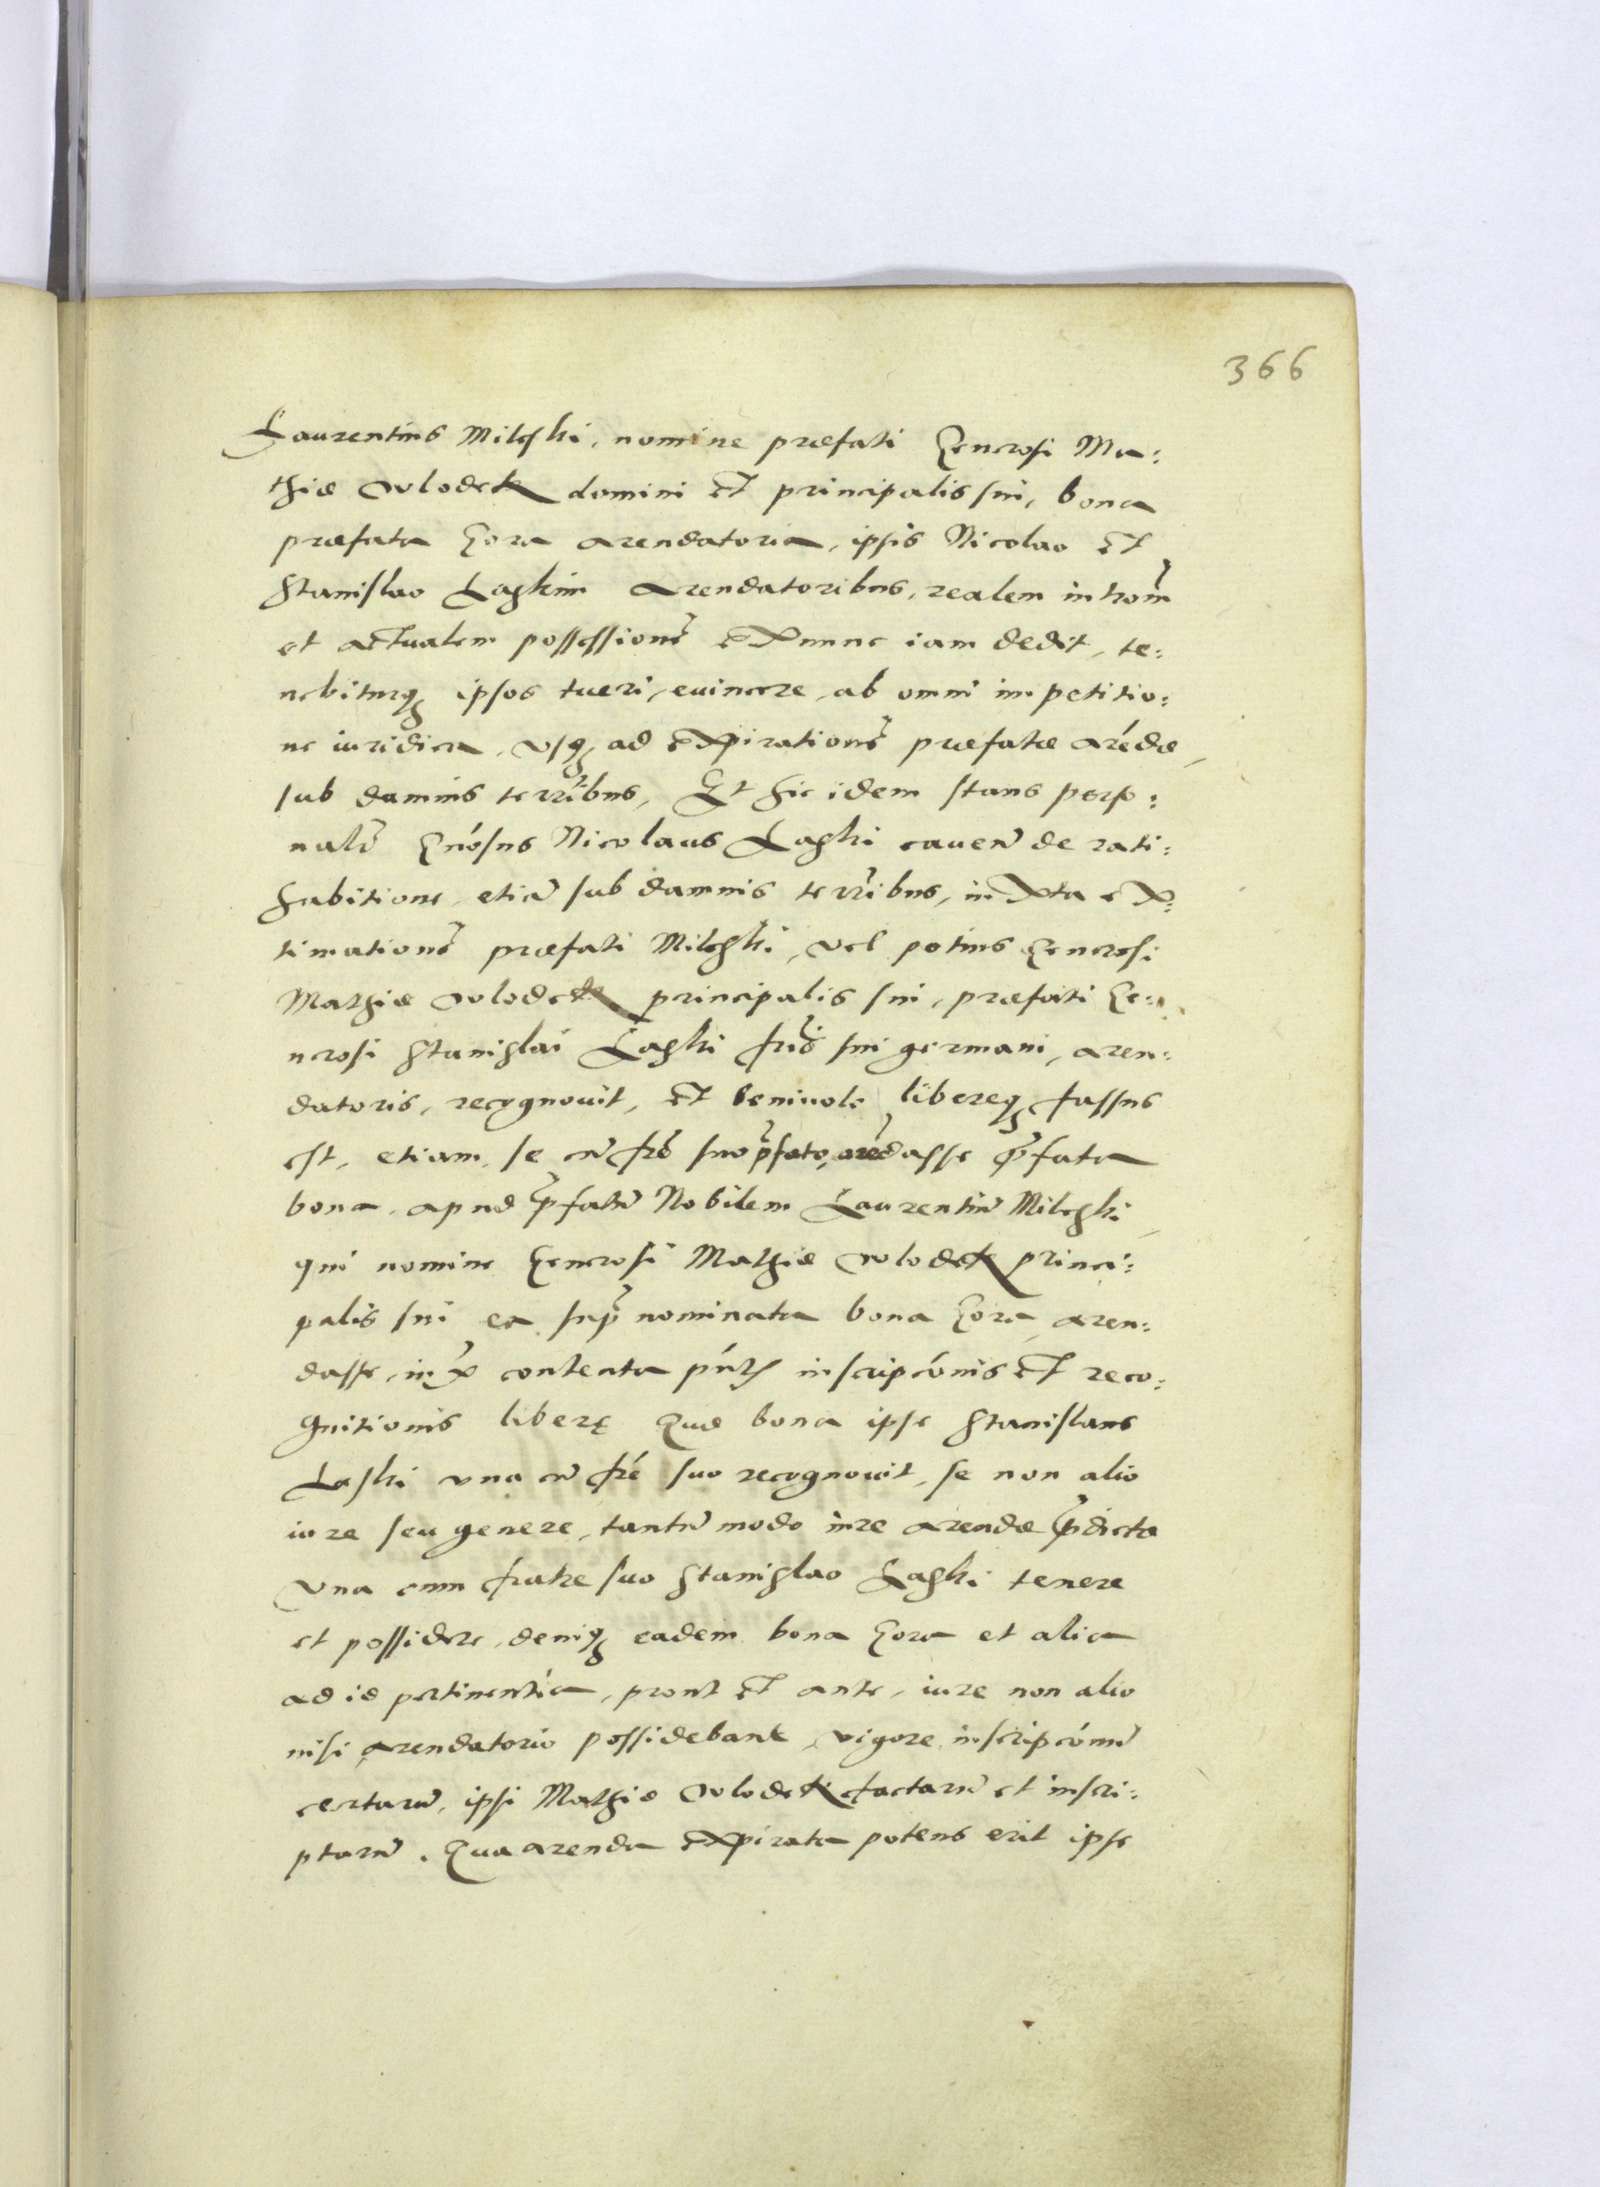 366
Laurentius Mileski, nomine præfati Generosi Ma:
thiæ Wlodek domini et principalis sui, bona
præfata Gora arendatoria, ipsis Nicolao et
Stanislao Laskim arendatoribus, realem introm̃
et actualem possessionẽ ex nunc iam dedit, te:
nebiturq̃ ipsos tueri, euincere, ab omni impetitio:
ne iuridica, vsq̃ ad expirationẽ præfatæ arẽdæ,
sub damnis terr̃ibus, Et hic idem stans perso:
nalr̃ Gñosus Nicolaus Laski cauen̄ de rati:
habitione, etiā sub damnis terr̃ibus, in Xta ex:
timationẽ præfati Mileski, vel potius Generosi
Mathiæ Wlodek principalis sui, præfati Ge:
nerosi Stanislai Laski fr̃is sui germani, aren:
datoris, recognouit, et beniuole libereq̃ fassus
est, etiam, se cū fr̃e suo p̃fato, arẽdasse p̃fata
bona, apud p̃fatū Nobilem Laurentiū Mileski,
qui nomine Generosi Mathiæ Wlodek princi:
palis sui ea sup̃nominata bona Gora, aren:
dasse, iux̃ contenta pñtis inscripc̃onis et reco:
gnitionis liberę Quæ bona ipse Stanislaus
Laski vna cū fr̃e suo recognouit, se non alio
iure seu genere, tantū modo iure arendæ p̃dicta
vna cum fratre suo Stanislao Laski tenere
et possidere, deniq̃ eadem bona Gora et alia
ad id pertinentia, prout et ante, iure non alio
nisi arendatorio possidebant, vigore inscripc̃onum
certarū, ipsi Mathiæ Wlodek factarū et inscri:
ptarū. Qua arenda expirata potens erit ipse